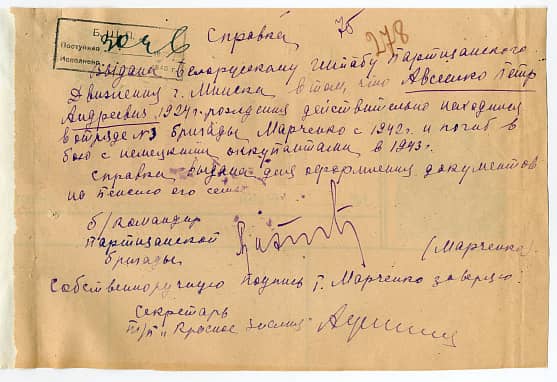 Б.Ш.П.Д.
Поступило
Исполнено
Справка
75
278
Выдана Белорусскому штабу Партизанского
Движения г. Минска в том, что Авсеенко Петр
Андреевич, 1924 г. рождения действительно находился
в отряде №3 бригады Марченко с 1942 г. и погиб в
бою с немецкими оккупантами в 1943 г.
Справка выдана для оформления документов
на пенсию его семье
б/командир
Партизанской
бригады
(Марченко)
Собственноручную подпись т. Марченко заверяю:
Секретарь
п/п "Красное